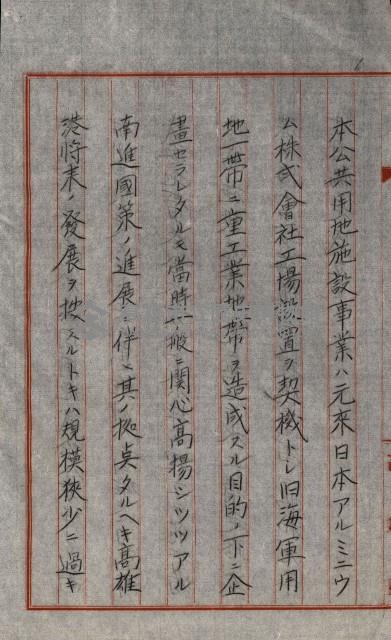 本公共用地施設事業ハ元來日本アルミニウ
ム株式會社工場設置ヲ契機トシ旧海軍用
地一帶ニ重工業地帶ヲ造成スル目的ノ下ニ企
畫セラレタルモ當時一般ニ関心高揚シツツアル
南進國策ノ進展ニ伴ヒ其ノ拠点タルヘキ高雄
港將来ノ發展ヲ按スルトキハ規模狹少ニ過キ